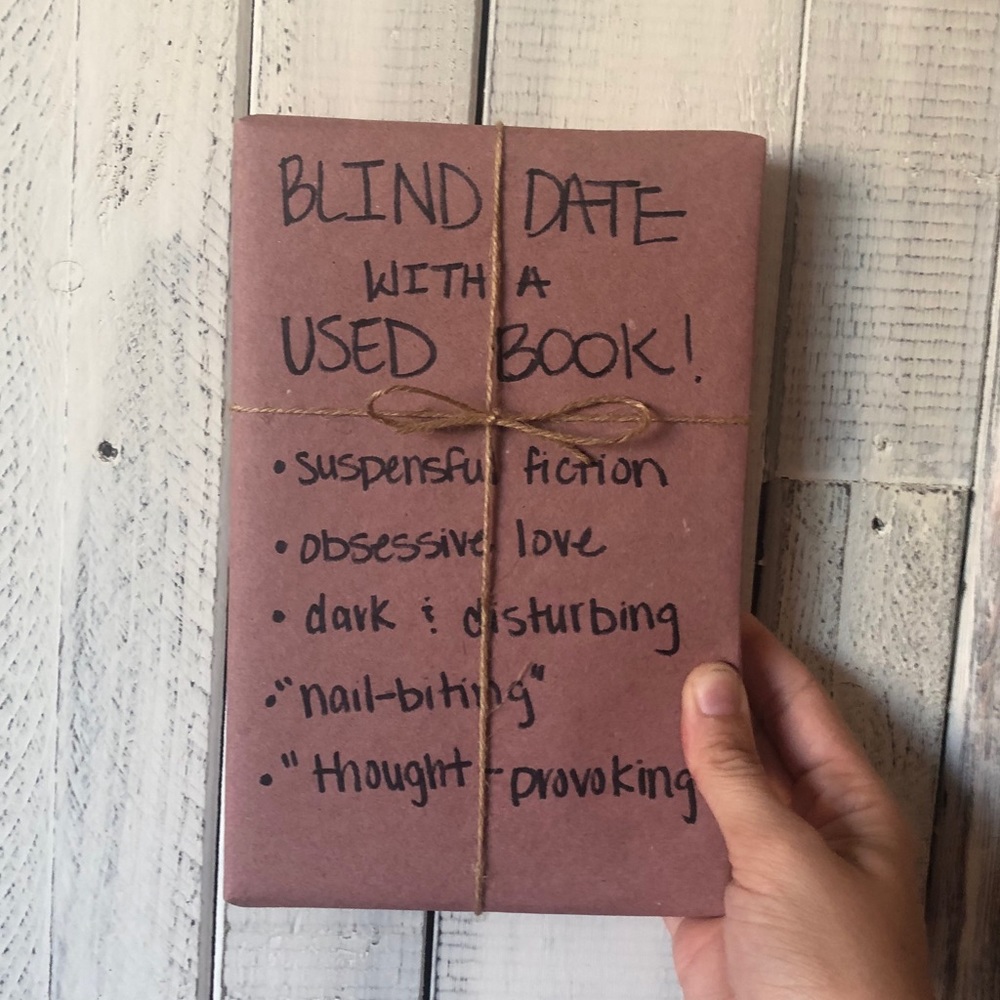 BLIND DATE
WITH A
USED BOOK!
• suspensful fiction
• obsessive love
• dark & disturbing
• "nail-biting"
• "thought-provoking